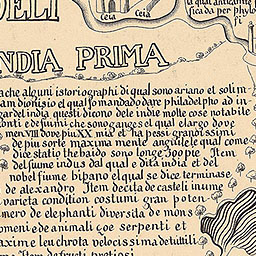 DELI
Ceia Ceia
la qual antica
ficada per phylo
pi
NDIA PRIMA
ache alguni istoriographi di qual sono ariano et solin
am dionisio el qual fo mandado dare philadelpho ad in
gardel india questi dicono dele indie molte cose notabile
onti e de fiumi che sono ganges el qual e largo dove
men VIII dove piu XX mia et ha pessi grandissimi
de piu sorte maxima mente anguile le qual come
dice statio thebaido sono longe 300 pie Item
del fiume indus dal qual e dita india et del
nobel fiume bipano el qual se dice terminase
de alexandro Item de cita de casteli inume
varieta condition costumi gran poten
mero de elephanti diversita de mons
omeni e de animali coe serpenti et
axime e leuchrota velocissima de tuti li